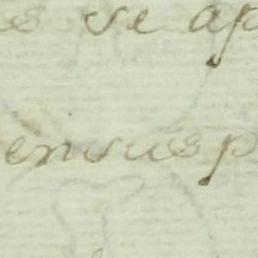 s se ap
en sus p